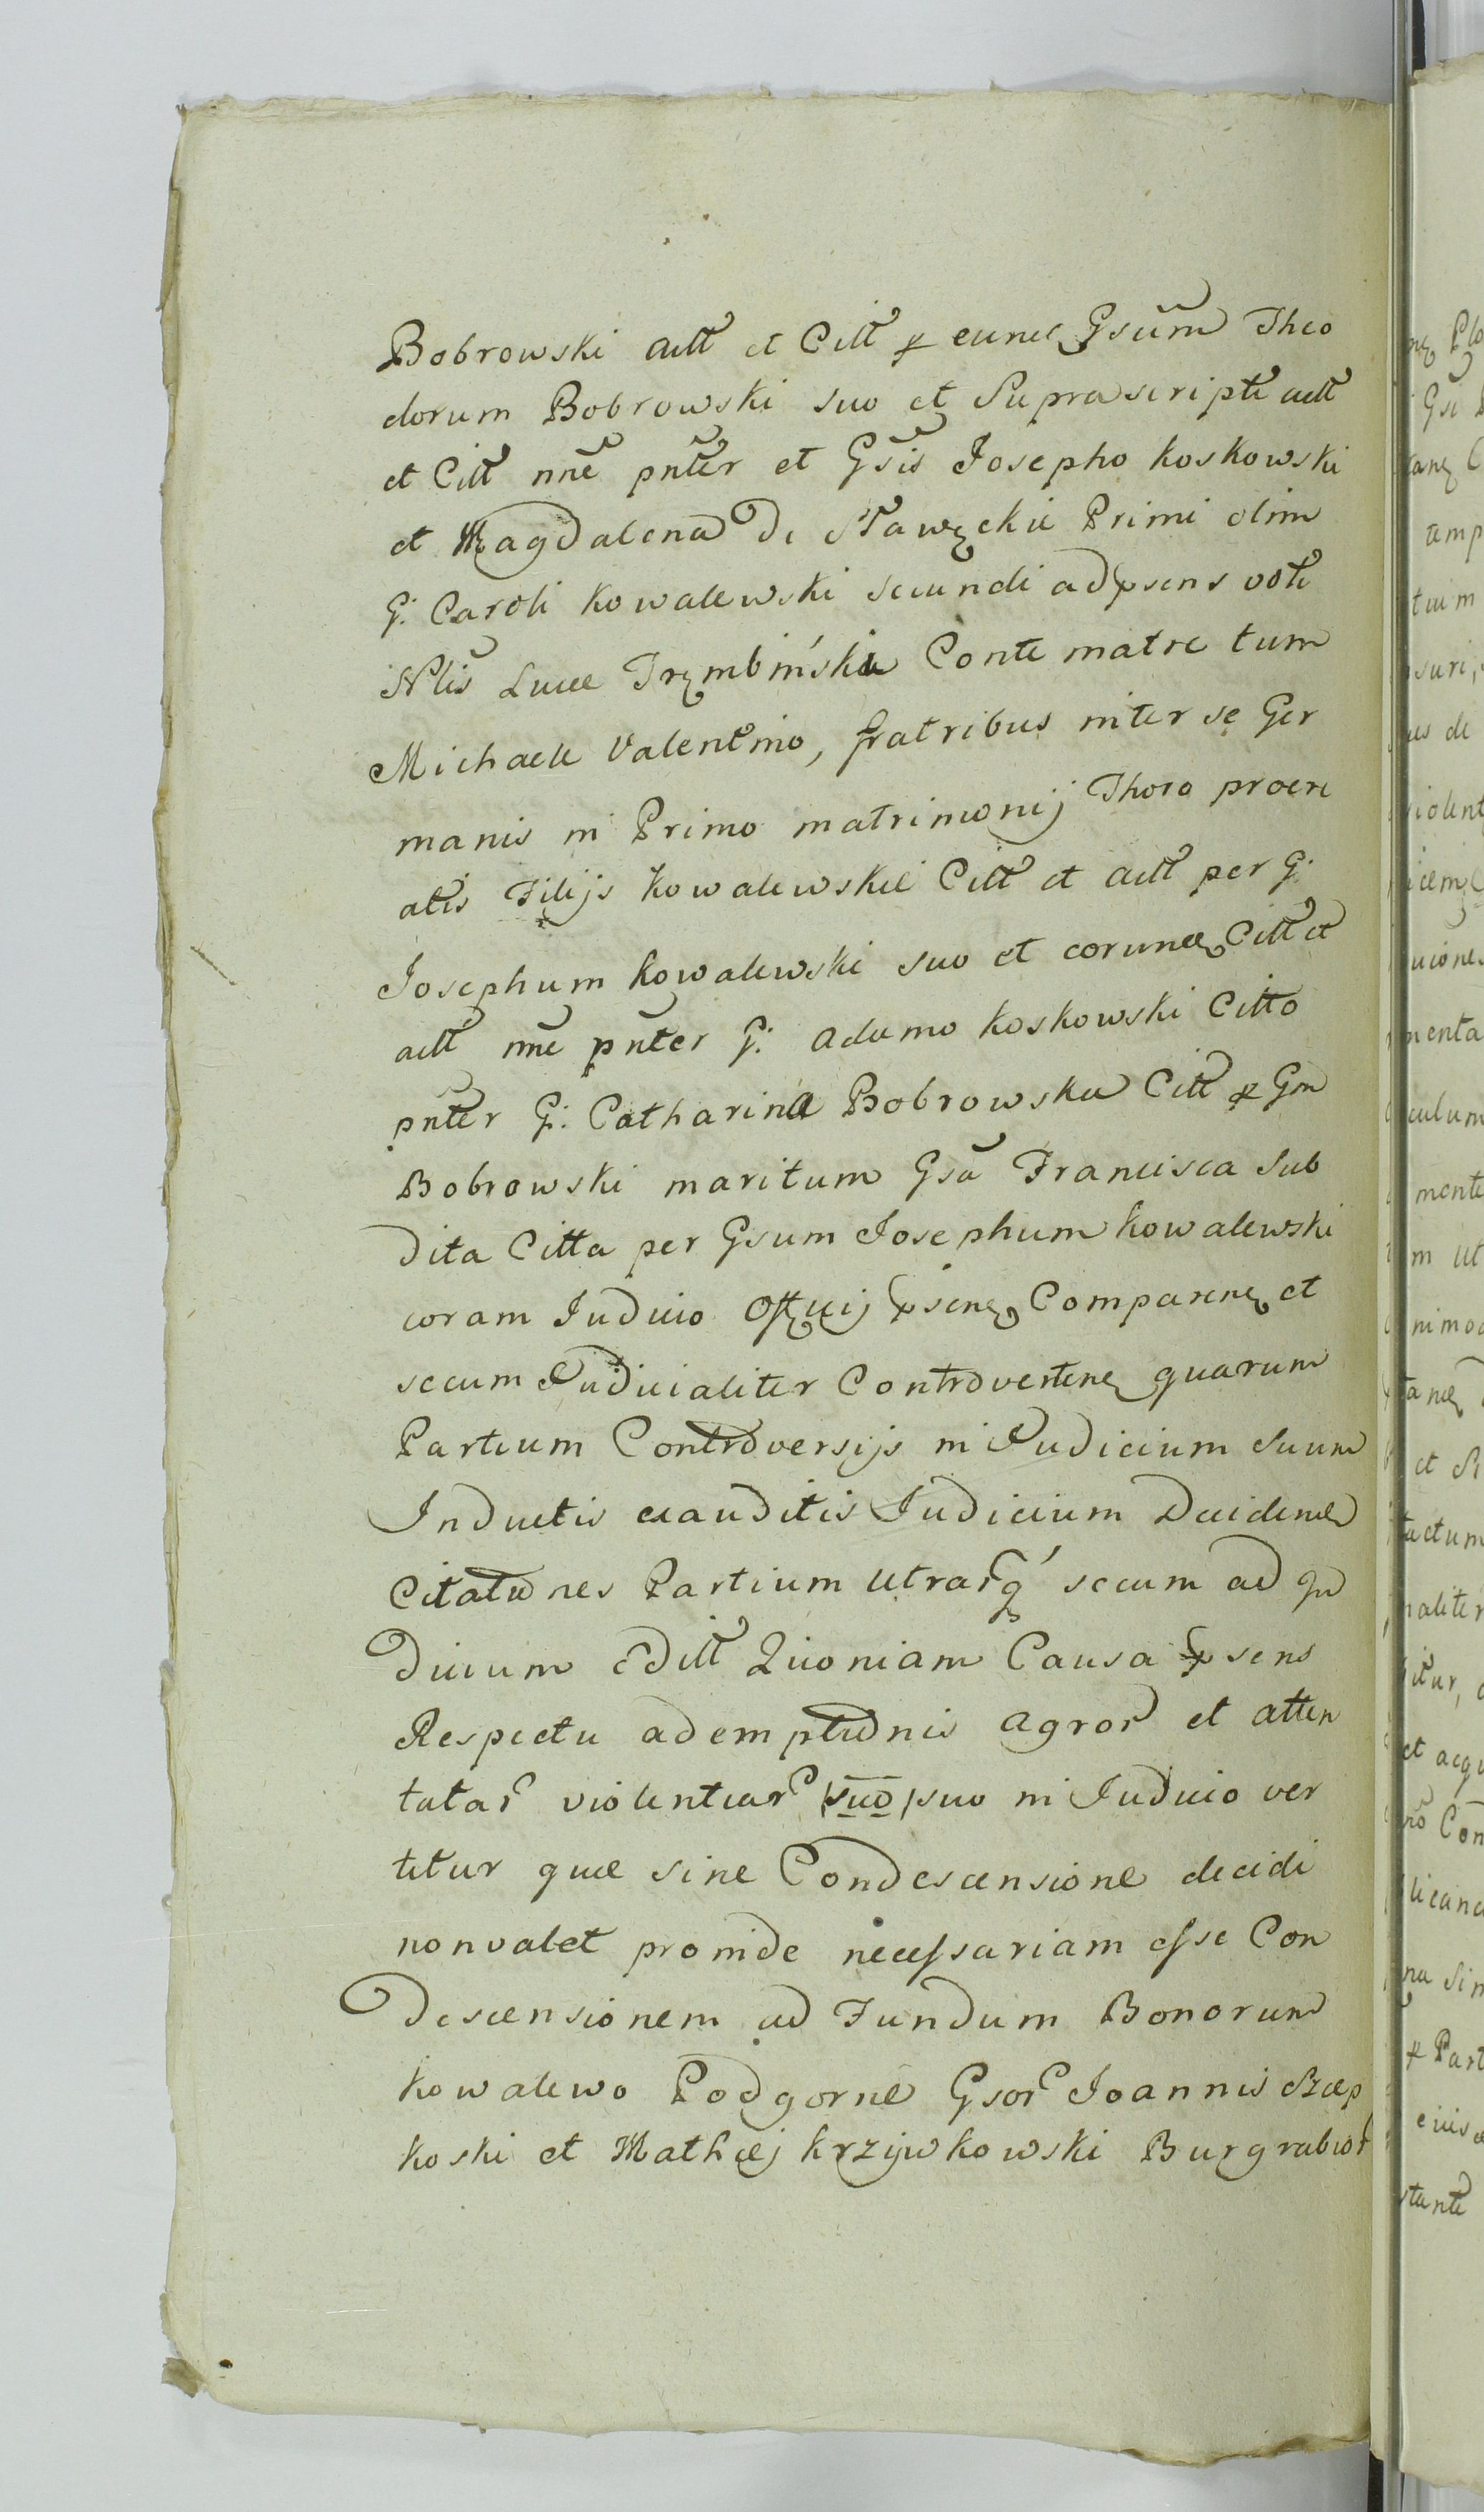 Bobrowski actt et Citt p eund Gsum Theo
dorum Bobrowski suo et Suprascripte actt
et Citt nne pnter et Gsis Josepho Koskowski
et Magdalena De Sławęckie Primi olim
G: Caroli Kowalewski secundi ad psens voti
Nlis Lucæ Trzmbińskie Conte matre tum
Michaele Valentino, fratribus inter se Ger
manis in Primo matrimonij Thoro procre
atis Filijs Kowalewskie Citt et actt per G:
Josephum Kowalewski suo et eorund Citt et
actt nne pnter G: Adamo Koskowski Citto
pnter G: Catharina Bobrowska Citt p Gm
Bobrowski maritum Gsa Francisca Sub
dita Citta per Gsum Josephum Kowalewski
coram Judicio Offcij psen Comparen et
secum Judicialiter Controverten quarum
Partium Controversijs in Judicium Suum
Inductis exauditis Judicium Deciden
Citationes Partium Utrarq secum ad Ju
Dicium Editt Quoniam Causa psens
Respectu ademptionis Agror et atten
tatar violentiar suo suo in Judicio ver
titur quæ sine Condescensione decidi
non valet proinde necessariam esse Con
Descensionem ad Fundum Bonorum
Kowalewo Podgorne Gsor Joannis Szcep
koski et Mathæj Krzywkowski Burgrabior